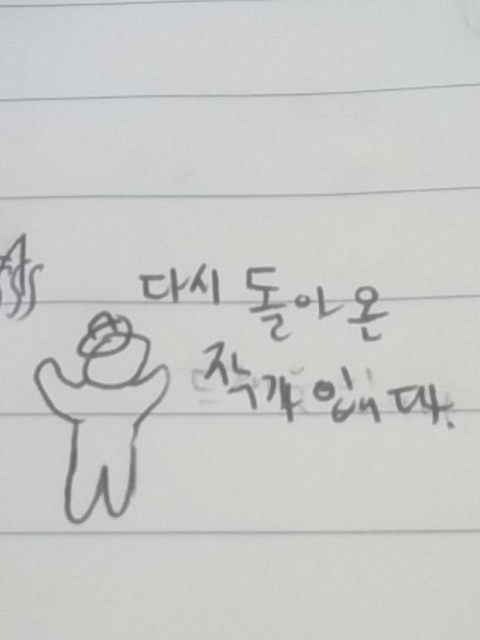 다시 돌아온
작가입니다.